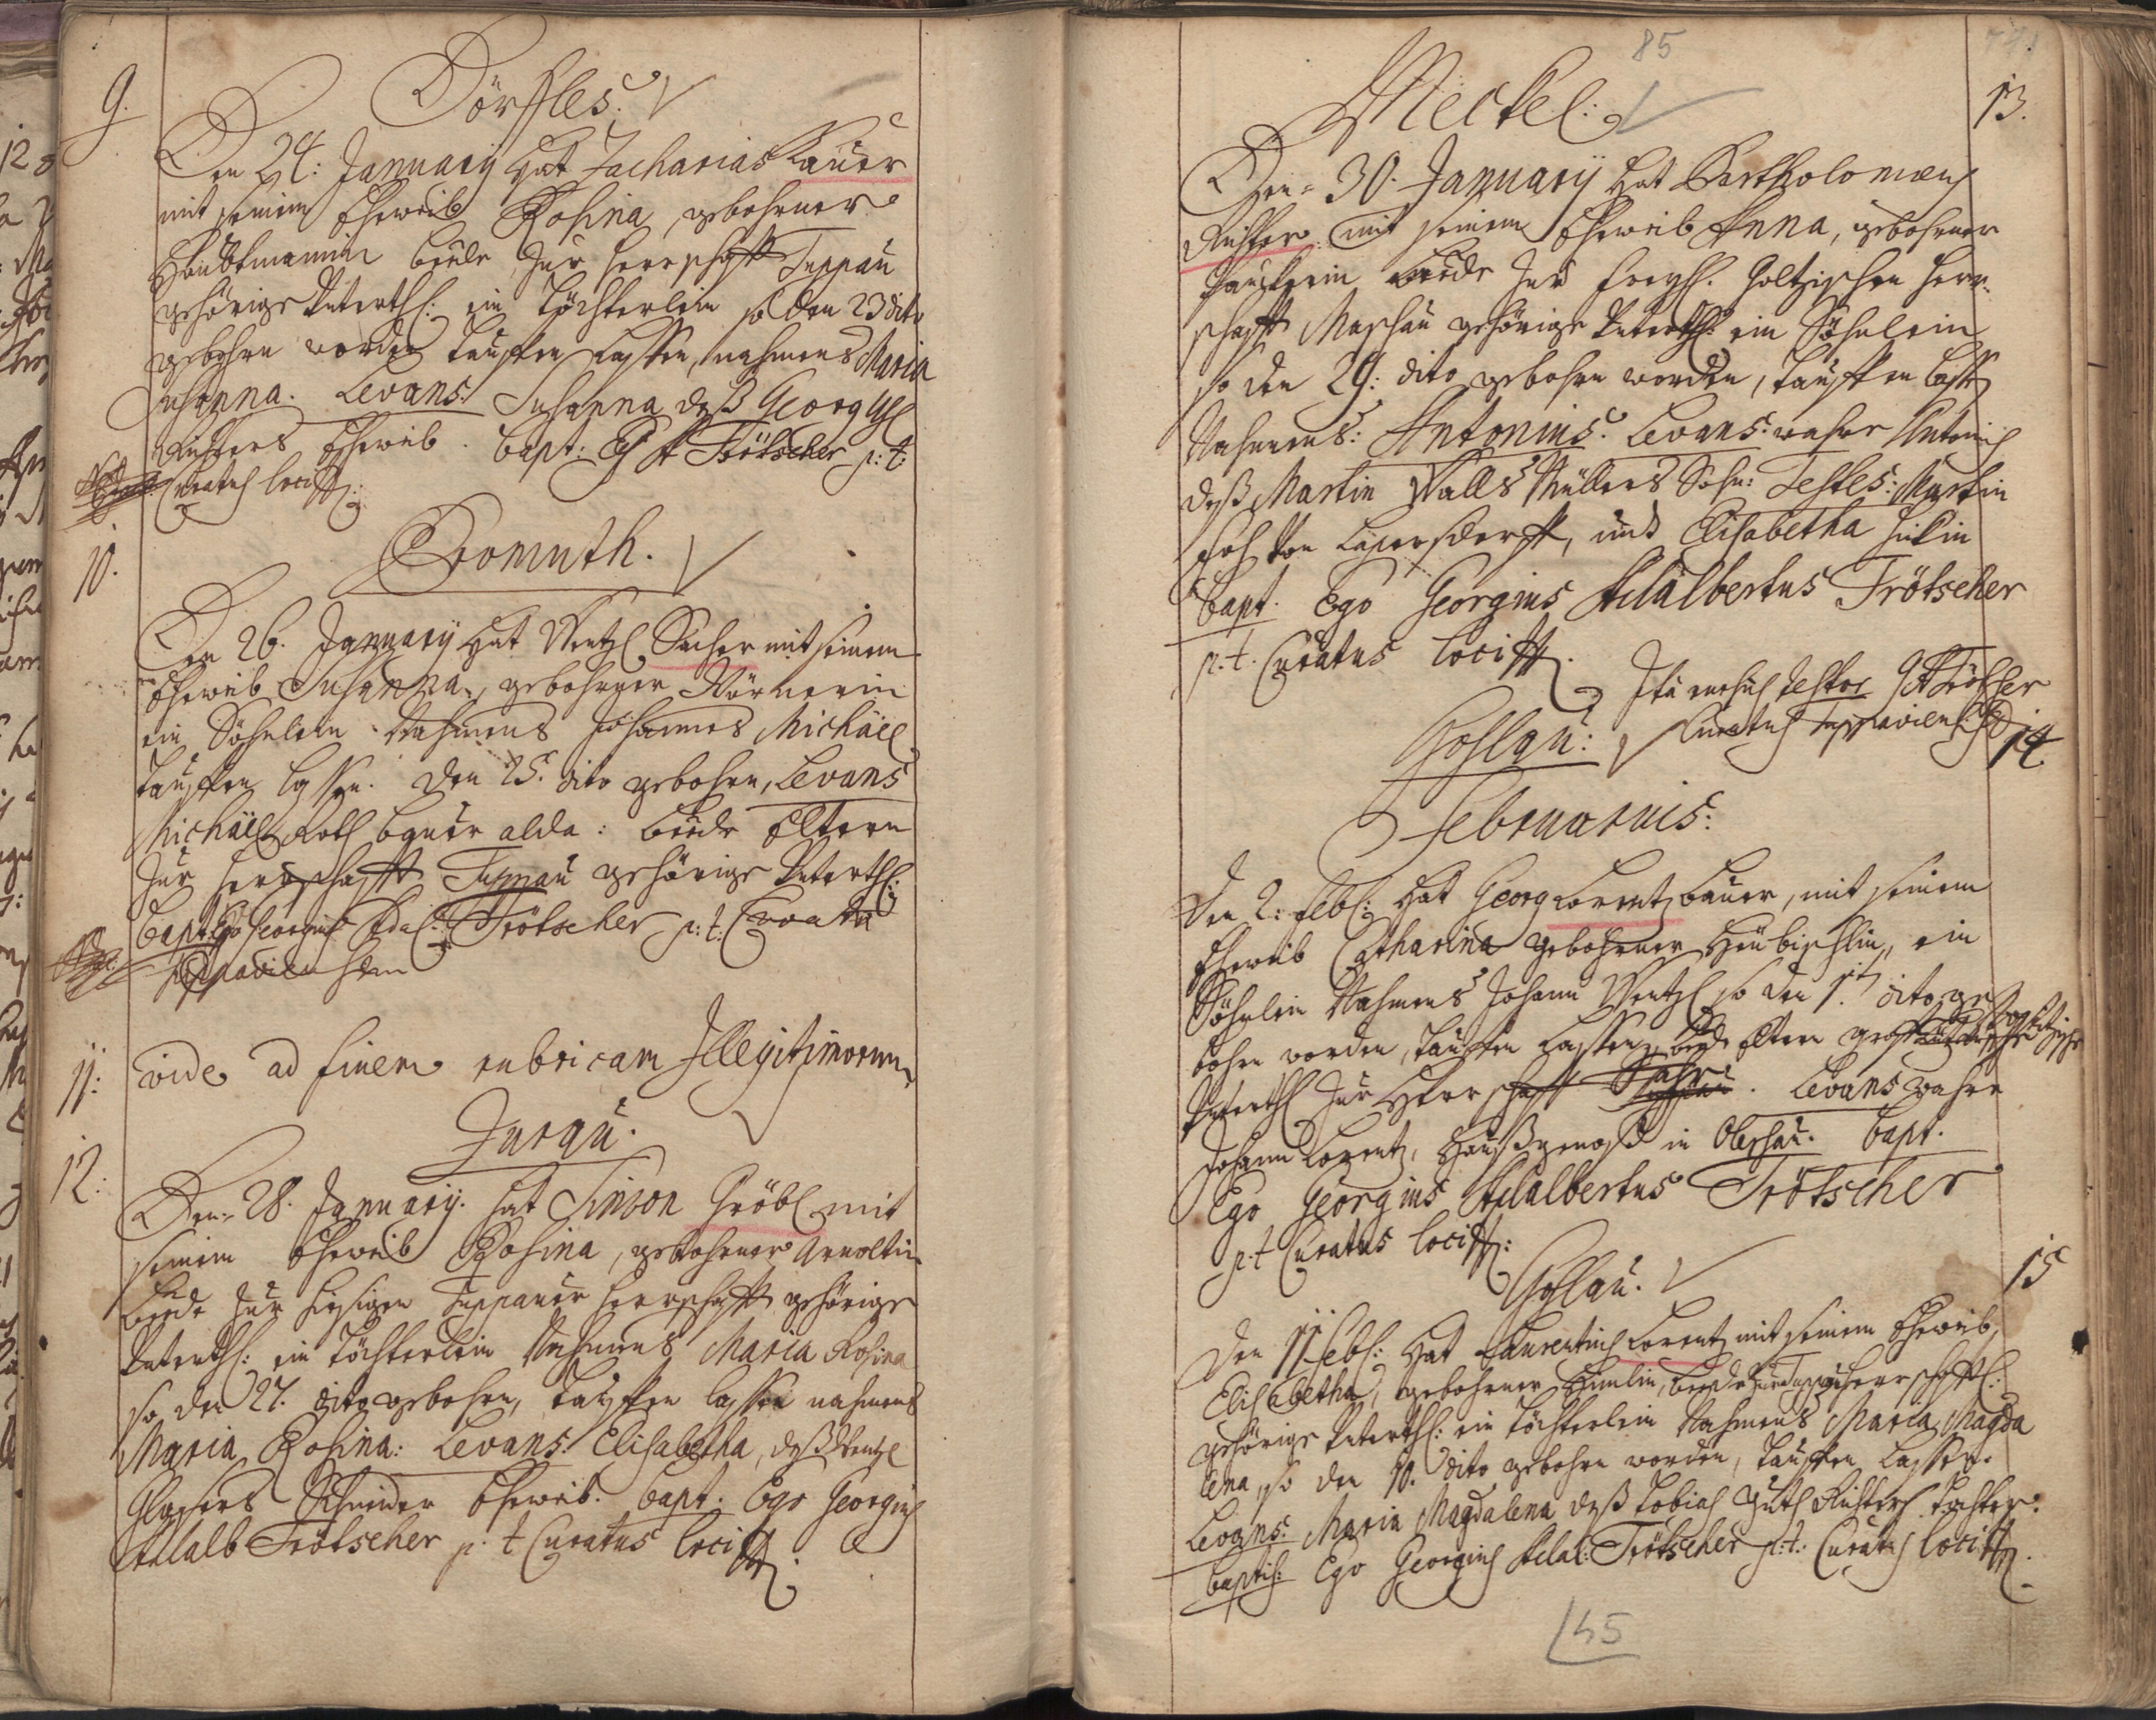 9.
Dörffles.
Den 24: January Hat Zacharias Lauer
mit seinem Eheweib Rosina gebohrner
Haubtmannin beede Zur Herrschafft Duppau
gehörige Unterth: ein Töchterlein so den 23 dito
gebohrn worden tauffen lassen, nahmens Maria
Susanna. Levans: Susanna deß Georg
Richters Eheweib. bapt: Trötscher p: t:
Curatus loci
10.
Bomuth.
Den 26. January Hat Wentzl Sacher mit seinem
Eheweib Susanna, gebohrner Körnerin
ein Söhnlein Nahmens Johannes Michäel
tauffen lassen. den 25. dito gebohrn, Levans
Michäel Roth bauer alda: beede Eltern
Zur Herrschafft Duppau gehörige Unterth:
bapt: Ego Georgius Adal: Trötscher p: t: Curatus
11: vide ad finem rubricam Illegitimorum
Jurau.
12:
Den 28. January. hat Simon Gröbl mit
seinem Eheweib Rosina, gebohrner Arnoltin
beede Zur hiesigen Duppauer Herrschafft gehörige
Unterth: ein Töchterlein Nahmens Maria Rosina
so den 27. dito gebohrn, tauffen lassen nahmens
Maria Rosina: Levans: Elisabetha, deß Wentzl
Glasers Schneider Eheweib. bapt. Ego Georgius
Adalb Trötscher p. t Curatus loci
85
Meckel:
13.
Den 30. January Hat Bartholomæus
Richter mit seinem Eheweib Anna, gebohrner
beede Zur freyh. Goltzischen Herr-
schafft Maschau gehörige Unterth: ein Söhnlein
so den 29: dito gebohrn worden, tauffen lassen
Nahmens: Antonius. Levans: wahre Antonius
deß Martin Walls Müllers Sohn: Testes: Martin
von, und Elisabetha
bapt. Ego Georgius Adalbertus Trötscher
p. t. Curatus loci
Ita
Curatus Duppaviensis
Goslau:
14.
Februarius:
Den 2: Feb: Hat Georg Lorentz bauer, mit seinem
Eheweib Catharina gebohrner, ein
Söhnlein Nahmens Johann Wentzl so den 1. dito ge
bohrn worden, tauffen lassen, beede Eltern
Unterth Zur Herrschafft. Levans wahre
Johann Lorentz, Haußgenoß in Oleschau. bapt.
Ego Georgius Adalbertus Trötscher
p. t Curatus loci
Goslau.
15
Den 11 Feb: Hat Laurentius Lorentz mit seinem Eheweib
Elisabetha, gebohrner, beede Zur Duppauer Herrschafft
gehörige Unterth: ein Töchterlein Nahmens Maria Magda
lena, so den 10. dito gebohrn worden, tauffen lassen.
Levans: Maria Magdalena deß Tobias Guth Richters Tochter.
baptis: Ego Georgius Adal: Trötscher p: t: Curatus loci
45